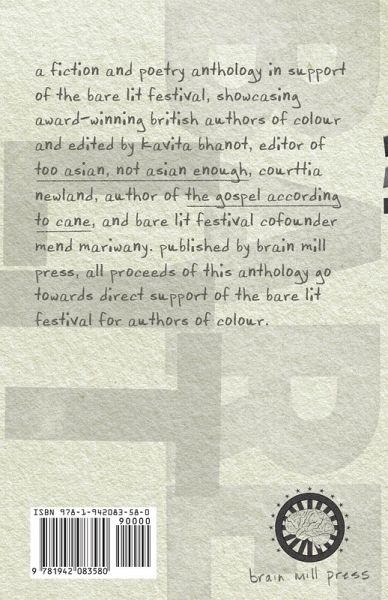 a fiction and poetry anthology in support
of the bare lit festival, showcasing
award-winning british authors of colour
and edited by kavita bhanot, editor of
too asian, not asian enough, courttia
newland, author of the gospel according
to cane, and bare lit festival cofounder
mend mariwany. published by brain mill
press, all proceeds of this anthology go
towards direct support of the bare lit
festival for authors of colour.
BARE
LIT
ISBN 978-1-942083-58-0
90000
9 781942 083580
brain mill press